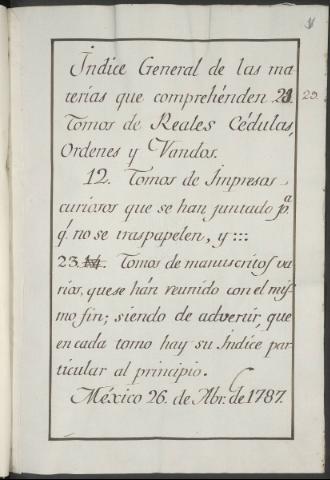 Índice General de las ma
terias que comprehénden 21. 23.
Tomos de Reales Cédulas,
Ordenes y Vandos.
12. Tomos de Impresos
curiosos que se han juntado pª
q' no se traspapelen, y :::
23 14. Tomos de manuscritos va
rios, que se hán reunido con el mis
mo fin; siendo de advertir, que
en cada tomo hay su Índice par
ticular al principio.
México 26. de Abr. de 1787.